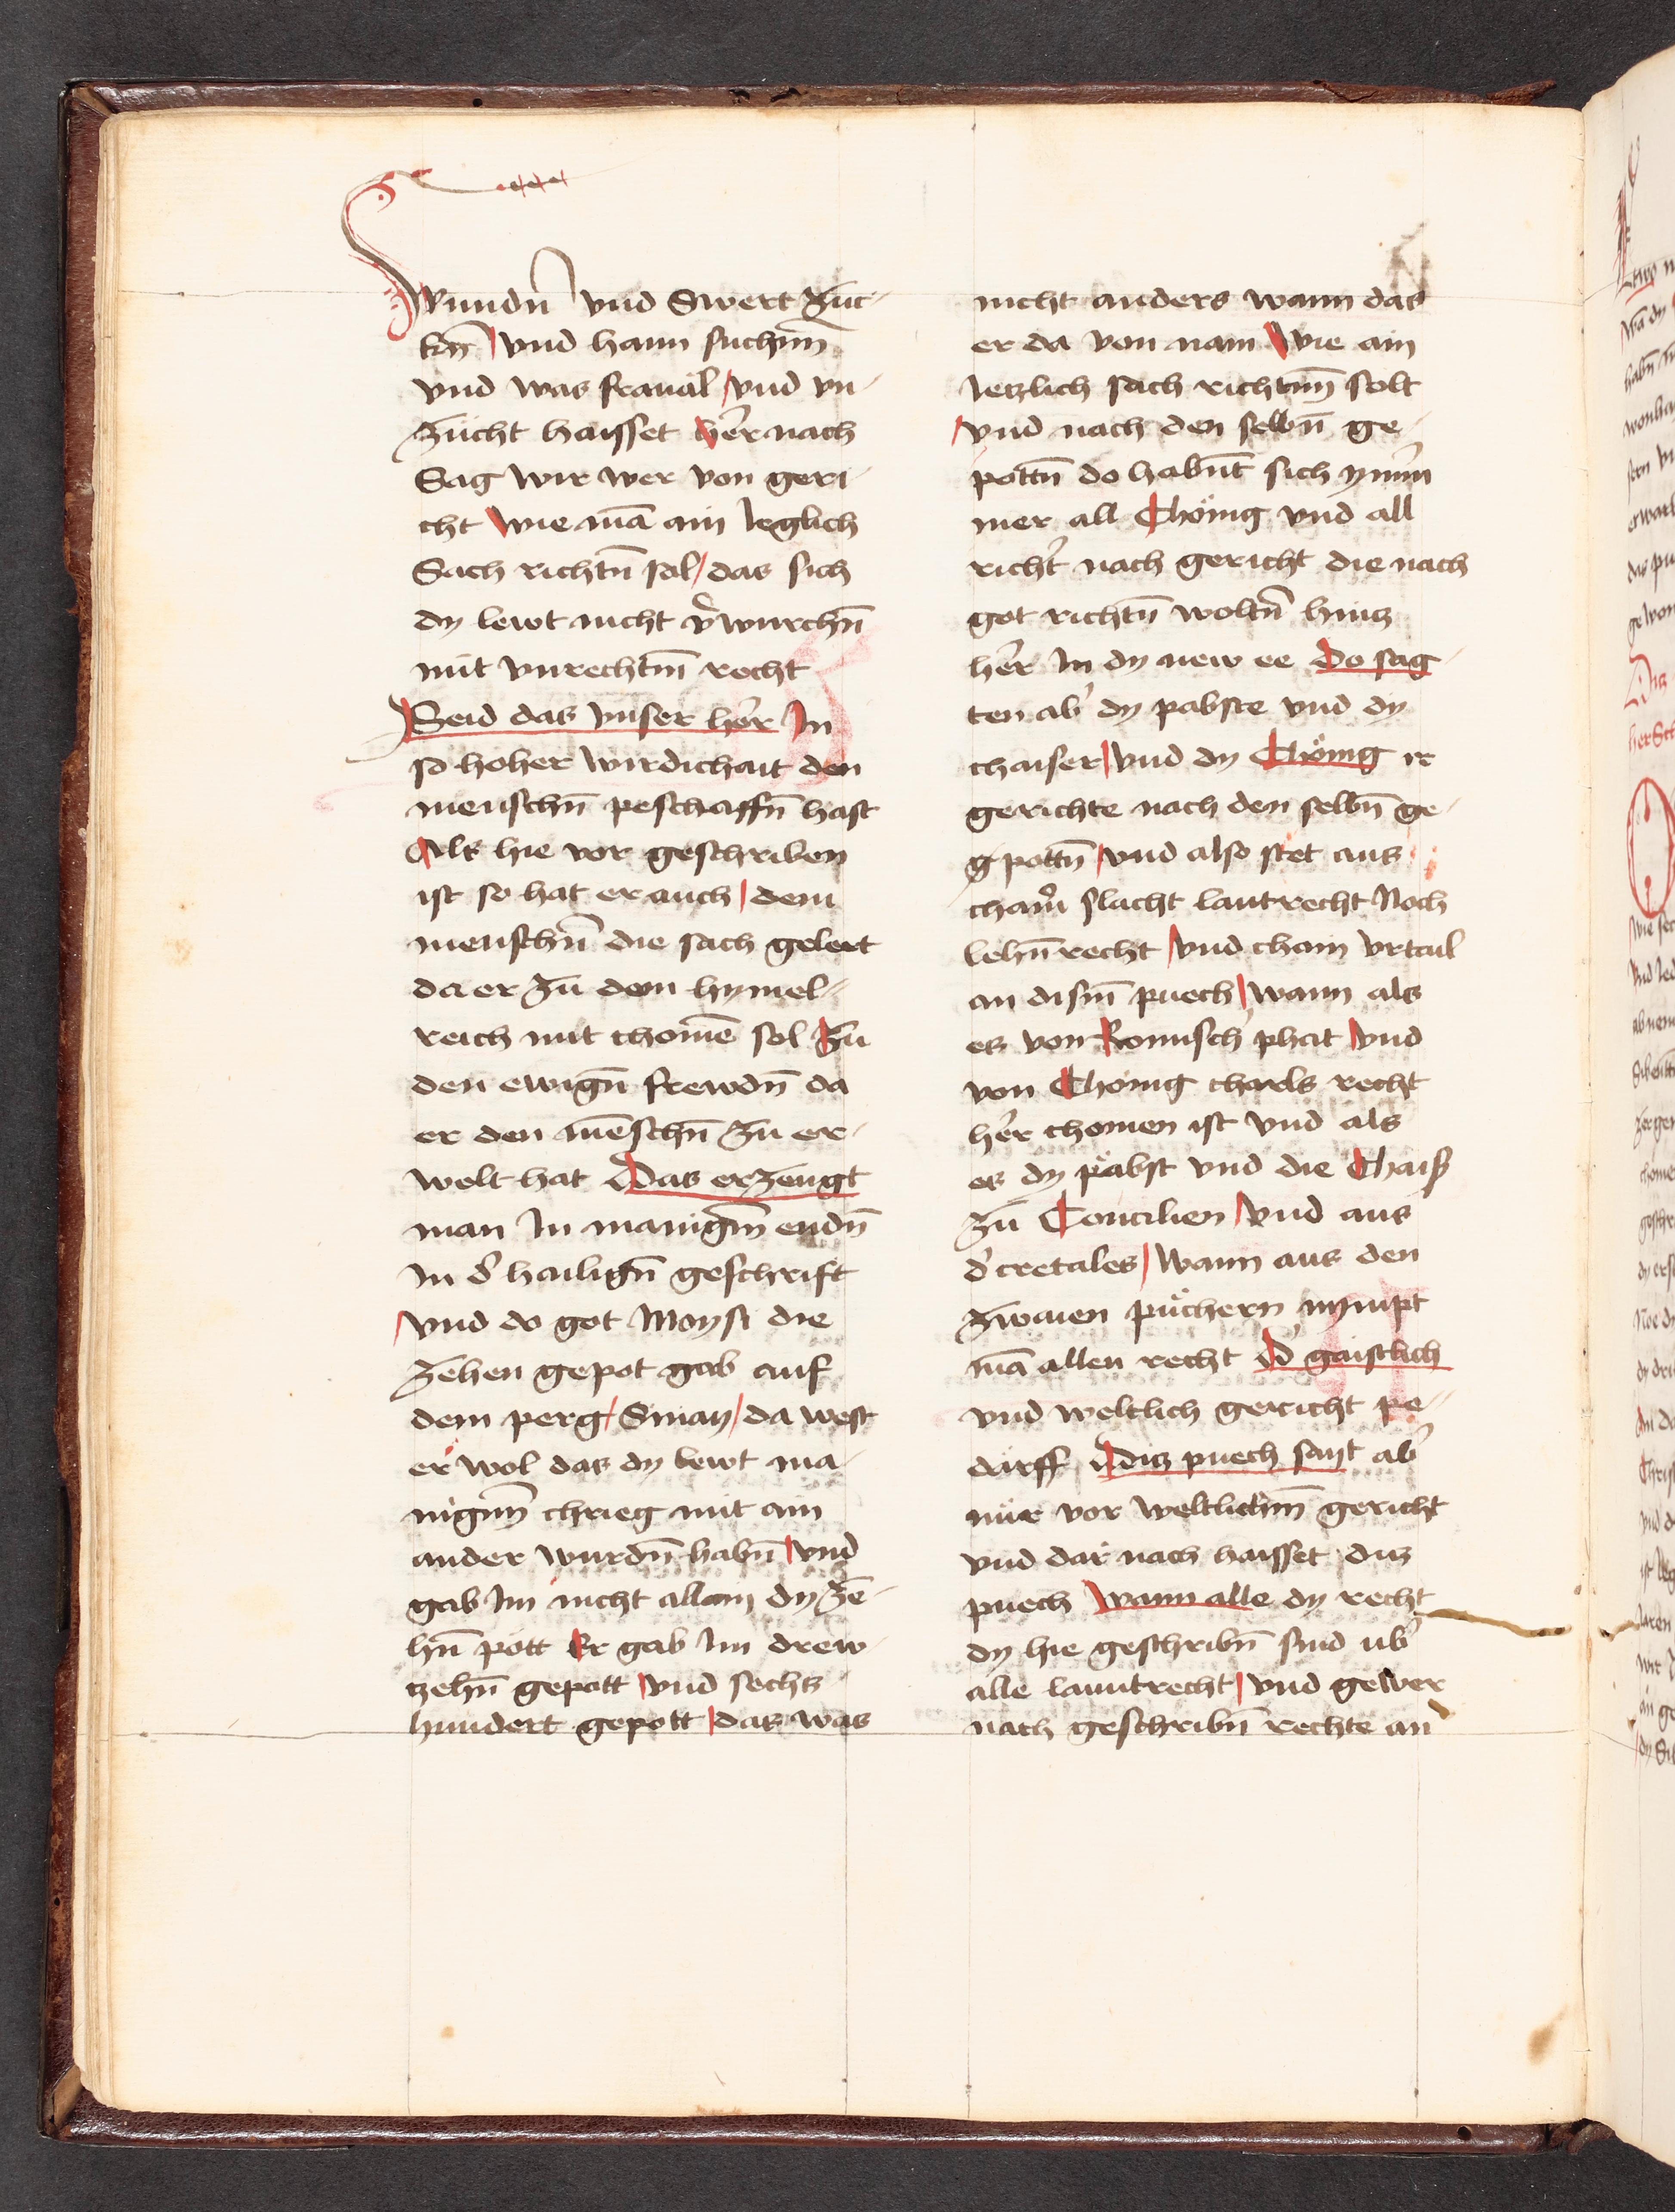 Wundn̄ vnd Swert zuc-
kn̄ vnd haim suchūn
vnd was fraual vnd vn-
zucht haisset her nach
Sag wir wer von geri-
cht wie mā ain Ieglich
Sach richtn̄ sol / das sich
dy lewt nicht v̓wurchn̄
mit vnrechtm̄ recht
Seid das vnser her In
so hoher wirdichait den
menschn̄ peschaffn̄ hast
Als hie vor geschriben
ist so hat er auch / dem
menschn̄ die sach gelert
da er zu dem hymel-
reich mit chomē sol zu
den ewign̄ frewdn̄ da
er den mēschn̄ zu er-
welt hat Das erzeugt
man In manigm̄ endn̄
In d̓ hailign̄ geschrift
vnd do got Moysi die
zehen gepot gab auf
dem perg / Sinay / da west
er wol das dy lewt ma-
nigm̄ chrieg mit ain
ander wurdn̄ habn̄ vnd
gab Im nicht allain dy ze-
hn̄ pott Er gab Im drew-
tzehn̄ gepott vnd sechs
hundert gepott / das was
nicht anders wann das
er da von nam Wie ain
Ietzlich sach richtnn̄ solt
vnd nach den selbn̄ ge-
pottn̄ do habn̄t sich ym̄
mer all Chönig vnd all
richt̓ nach gericht die nach
got richtn̄ woltn̄ hintz
her In dy new ee Do sag-
ten ab̓ dy pabste vnd dy
chaiser / vnd dy Chönig ir
gerichte nach den selbn̄ ge-
g pottn̄ / vnd also stet aus
cham̓ slacht lantrecht Noch
lehn̄ recht / vnd cham vrtail
an dism̄ puech / wann als
es von Romisch phat vnd
von Chonig charls recht
her chomen ist vnd als
es dy päbst vnd die Chais̓
zu Concilien / vnd aus
d̓cretales / Wann aus den
zwaien püchern nympt
mā allen recht D̓ gaistlich
vnd weltlich gericht pe-
darff Ditz puech sayt ab̓
nür vor weltlichm̄ gericht
vnd dar nach haisset ditz
puech Wann alle dy recht
dy hie geschribn̄ sind üb̓
alle lanntrecht / vnd gewer
nach geschribn̄ rechte an